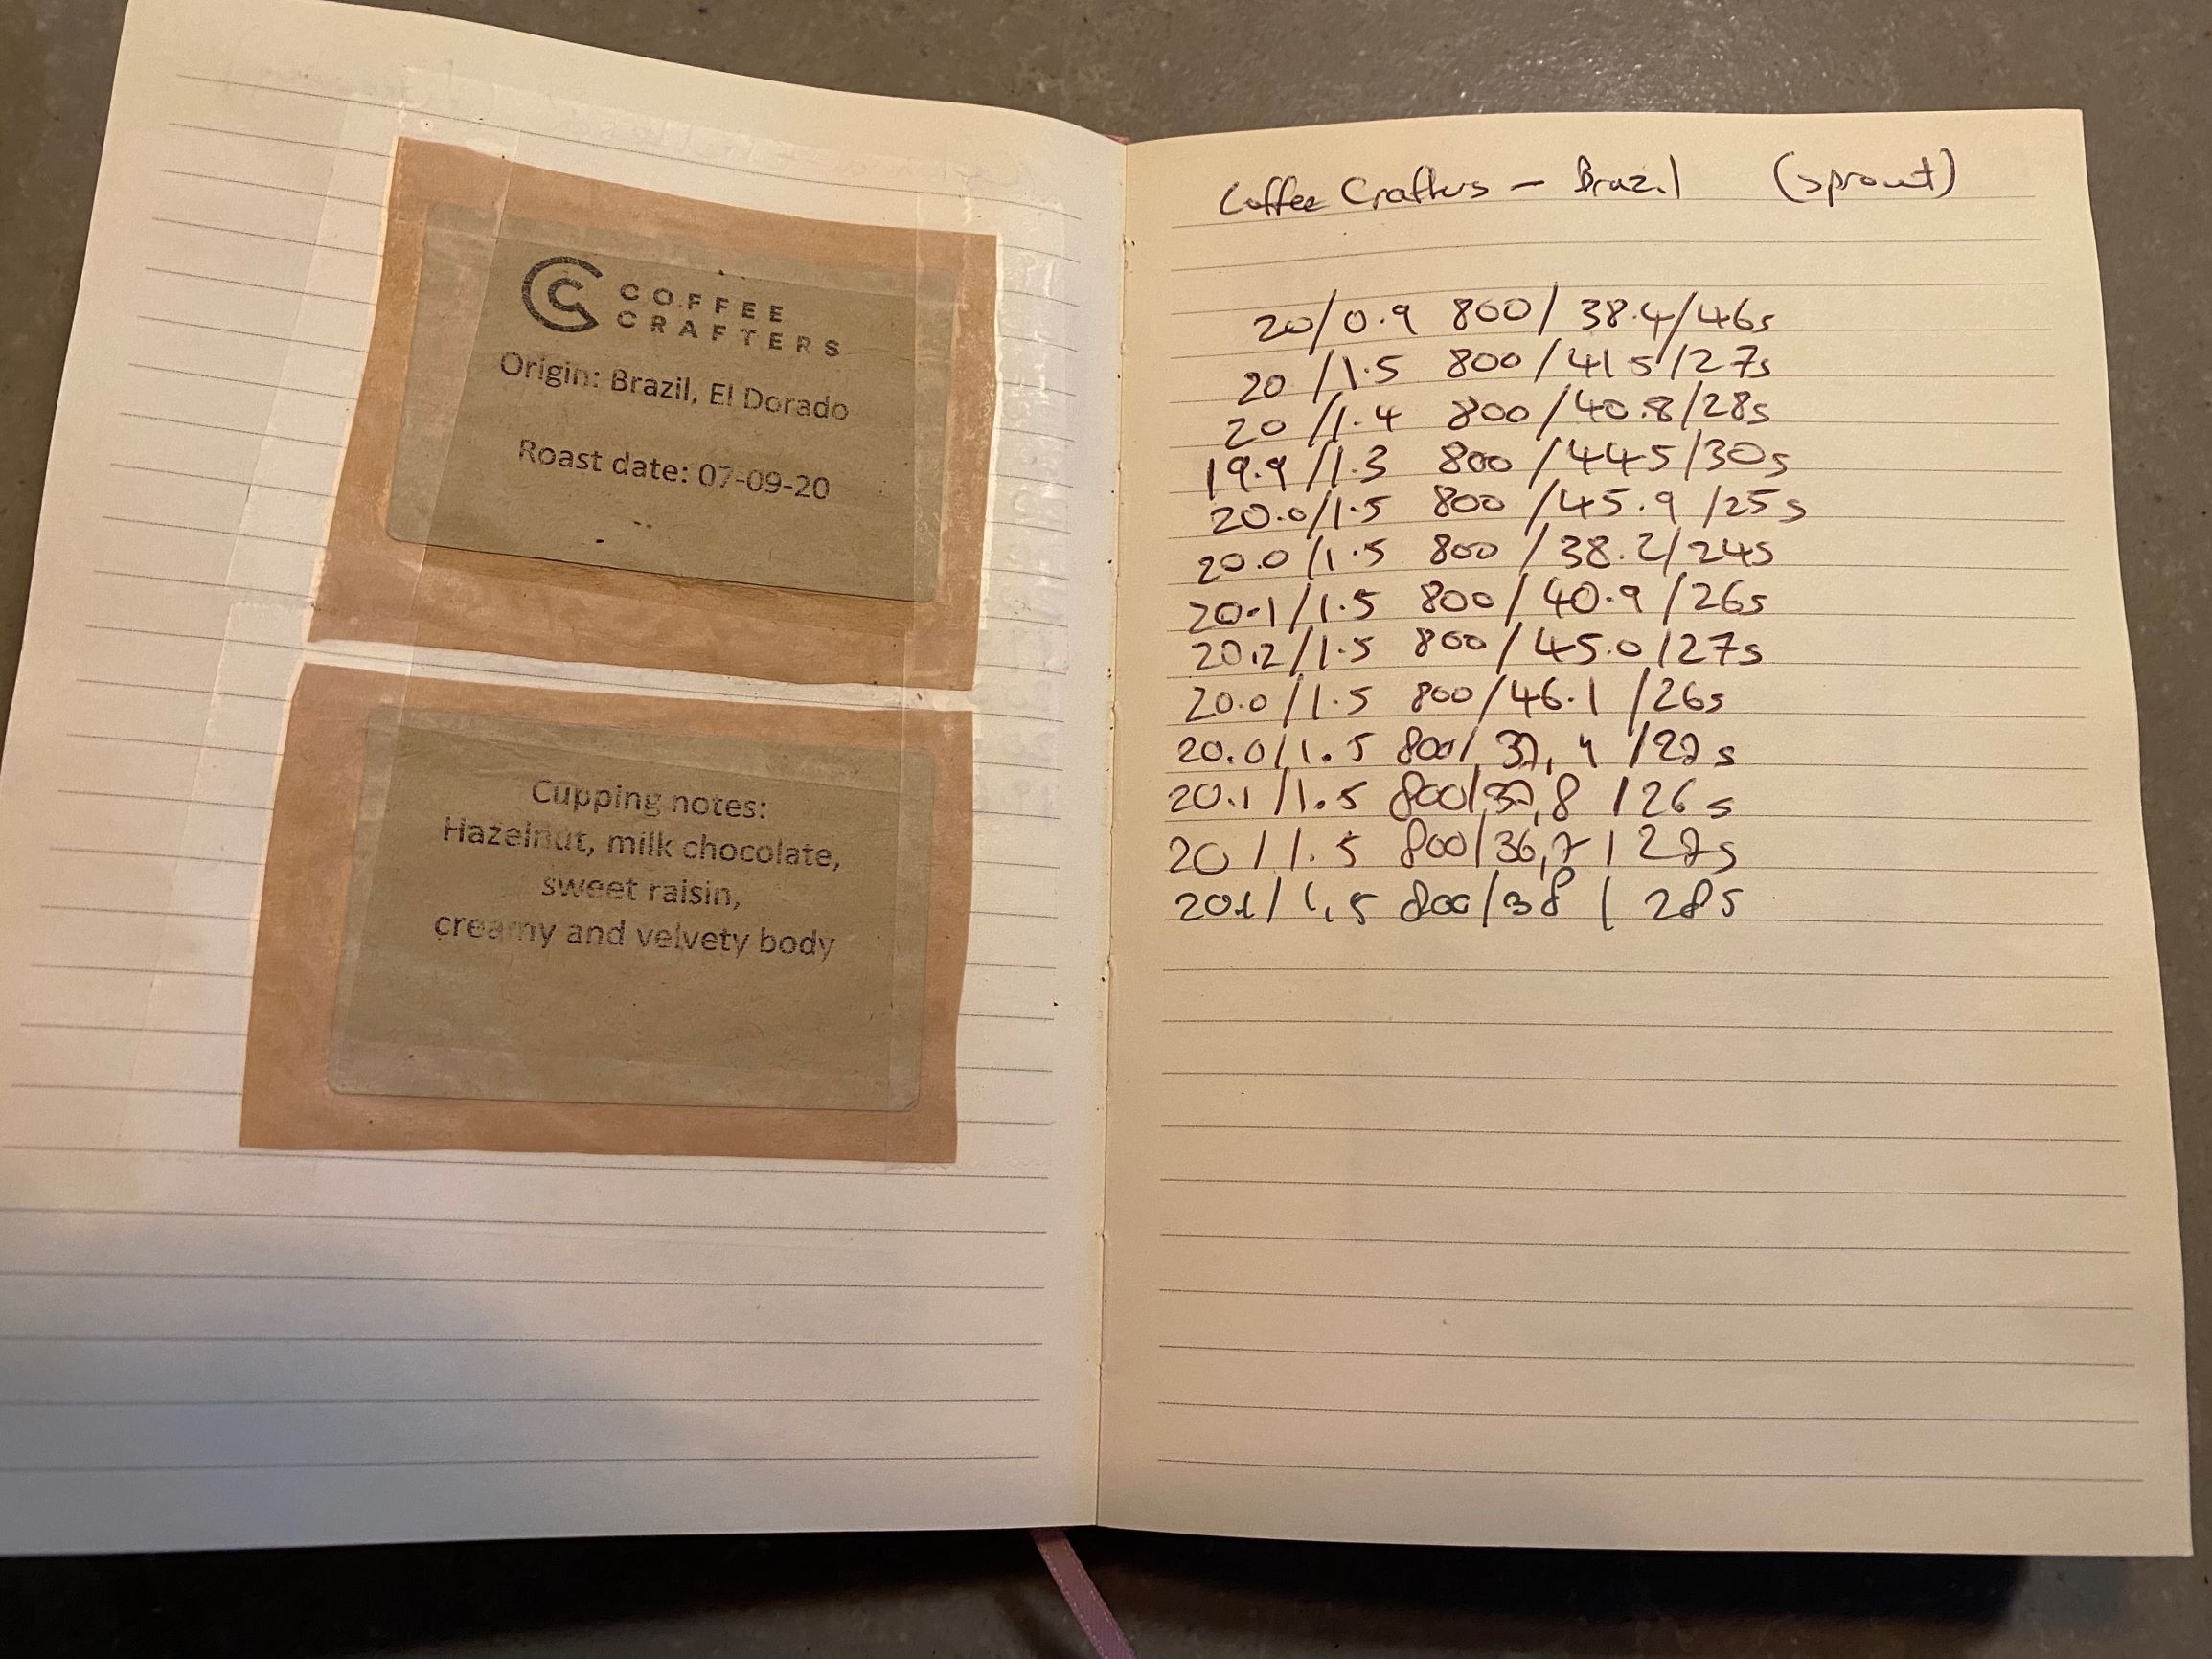 COFFEE
CRAFTERS
Origin: Brazil, El Dorado
Roast date: 07-09-20
Cupping notes:
Hazelnut, milk chocolate,
sweet raisin,
creamy and velvety body
Coffee Crafters - Brazil (sprout)
20/0.9 800/38.4/46s
20/1.5 800/415/27s
20/1.4 800/40.8/28s
19.9/1.3 800/445/30s
20.0/1.5 800/45.9/25s
20.0/1.5 800/38.2/24s
20.1/1.5 800/40.9/26s
20.2/1.5 800/45.0/27s
20.0/1.5 800/46.1/26s
20.0/1.5 800/37,4/27s
20.1/1.5 800/37,8/26s
20/1.5 800/36,7/27s
20.1/1,5 800/38/28s